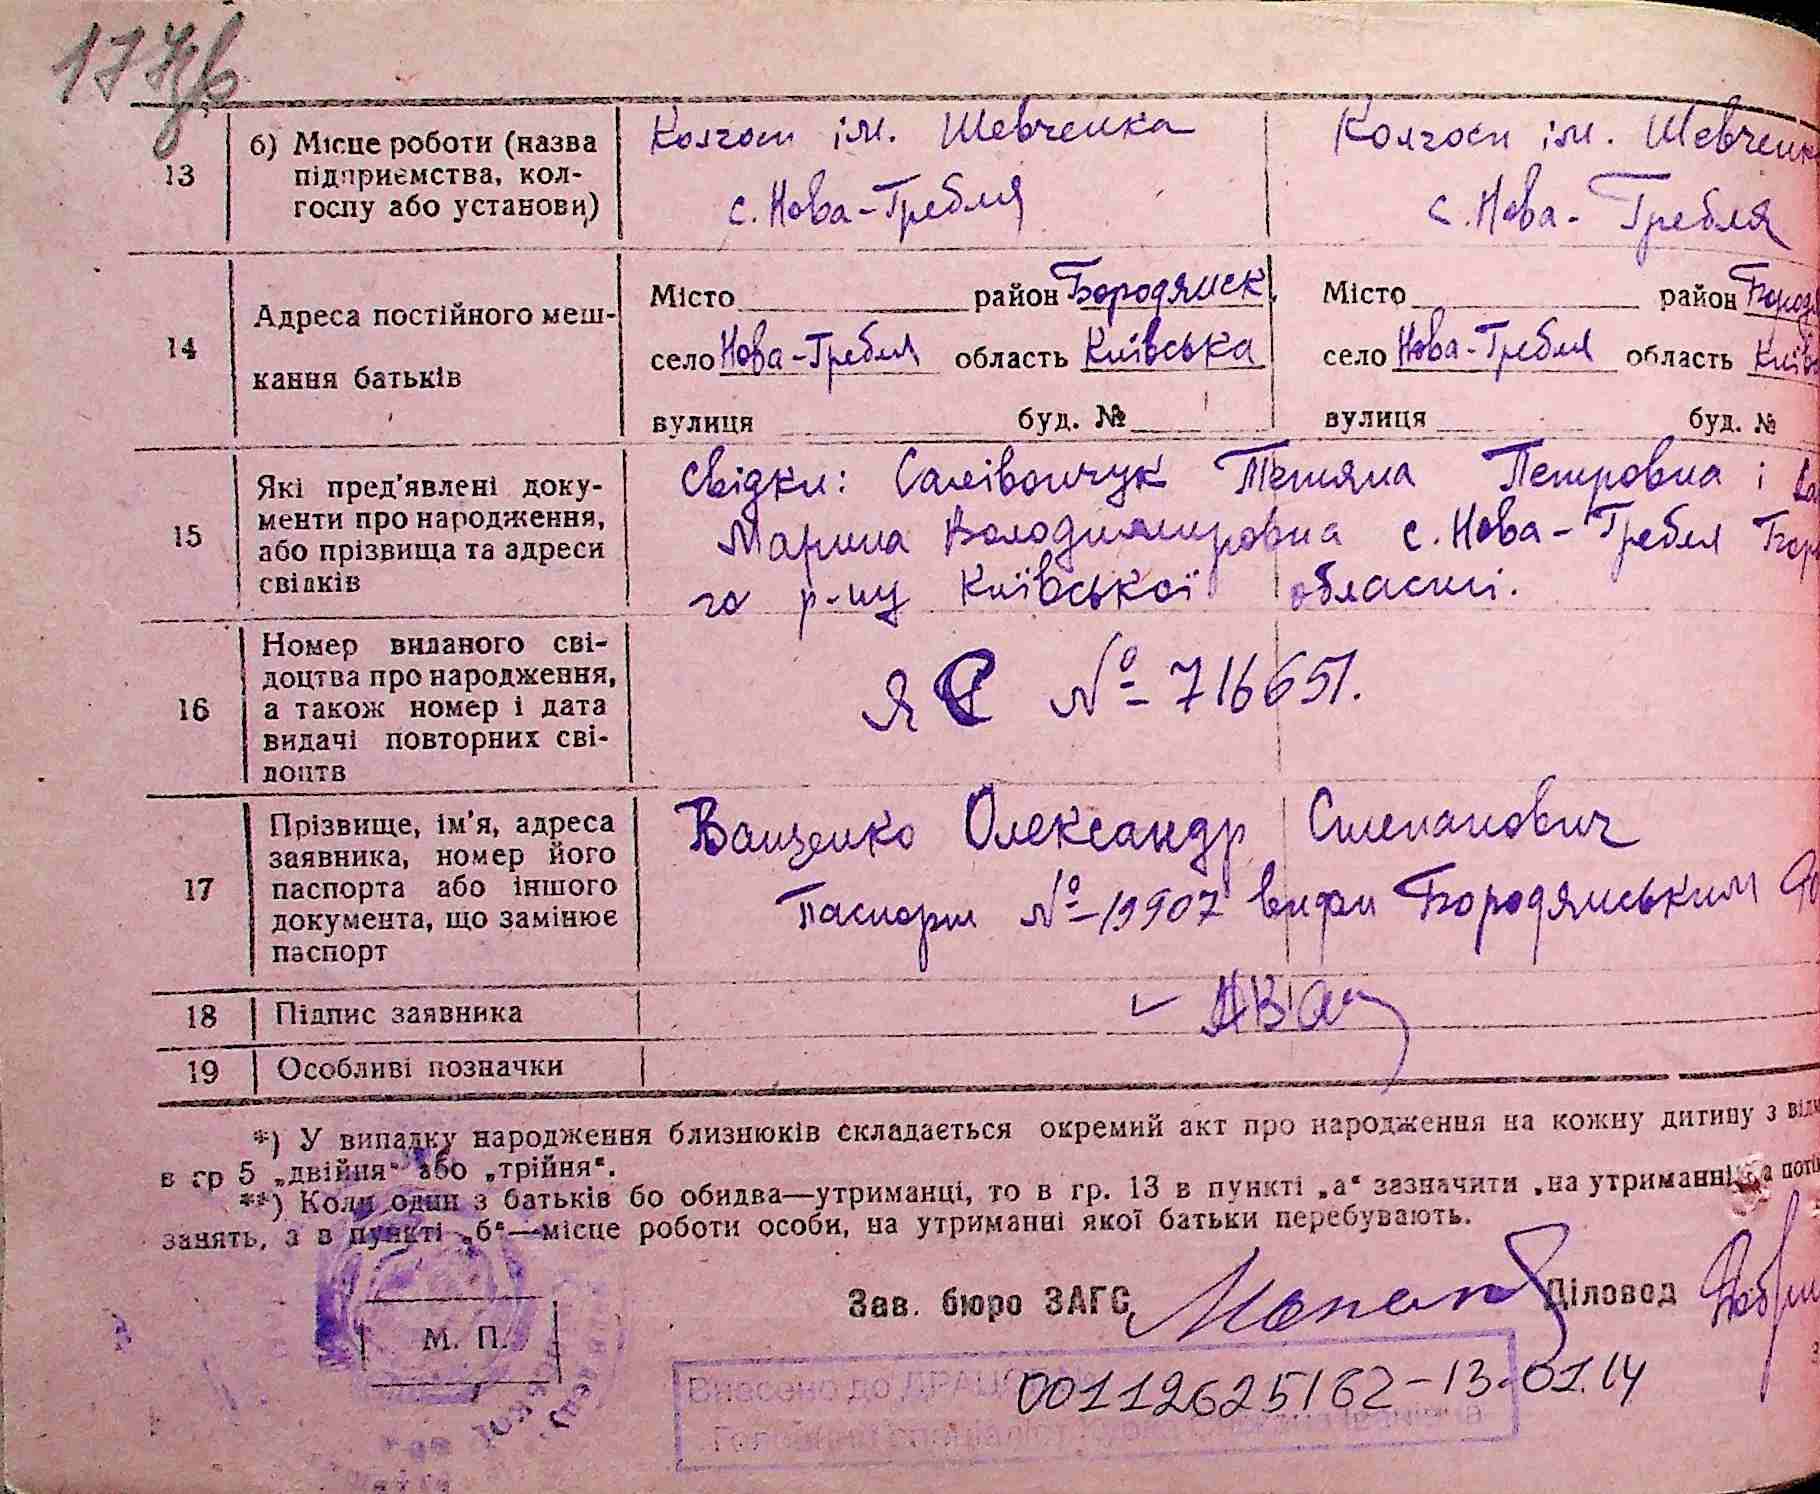 177зв
13
б) Місце роботи (назва
підприємства, кол-
госпу або установи)
Колгосп ім. Шевченка
с. Нова-Гребля
Колгосп ім. Шевченк
с. Нова-Гребля
14
Адреса постійного меш-
кання батьків
Місто район Бородянск.
село Нова-Гребля область Київська
вулиця буд. №
Місто район Бород
село Нова-Гребля область Київс
вулиця буд. №
15
Які пред'явлені доку-
менти про народження,
або прізвища та адреси
свідків
Свідки: Салівончук Тетяна Петровна і
Марина Володимировна с. Нова-Гребля Бор
го р-ну Київської області.
16
Номер виданого сві-
доцтва про народження,
а також номер і дата
видачі повторних сві-
доцтв
ЯЄ № 716651.
17
Прізвище, ім'я, адреса
заявника, номер його
паспорта або іншого
документа, що замінює
паспорт
Ващенко Олександр Степанович
Паспорт № 19907 видан Бородянським
18
Підпис заявника
19
Особливі позначки
*) У випадку народження близнюків складається окремий акт про народження на кожну дитину з від
в гр 5 „двійня“ або „трійня“.
**) Коли один з батьків бо обидва—утриманці, то в гр. 13 в пункті „а“ зазначити „на утриманні
занять, а в пункті „б“—місце роботи особи, на утриманні якої батьки перебувають.
Зав. бюро ЗАГС
Діловод
М. П.
Внесено до ДРАЦ
00112625162-13.01.14